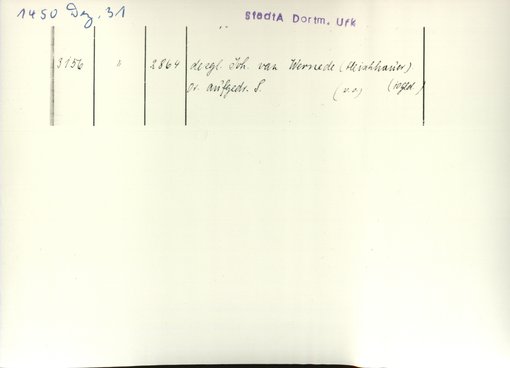 1450 Dez. 31
StadtA Dortm. Urk
3156 " 2864 desgl. Joh. van Wernede (Fleischhauer)
Or. aufgedr. S. (v.o.) (10 fld.)